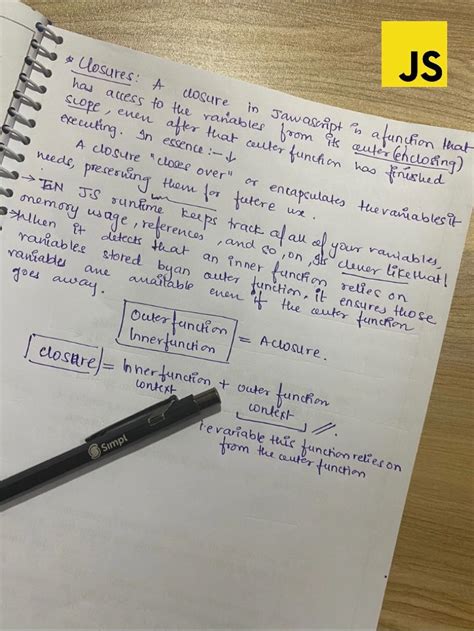 JS
* Closures: A closure in Javascript is a function that
has access to the variables from its outer (enclosing)
scope, even after that outer function has finished
executing. In essence:- ↓
A closure "closes over" or encapsulates the variables it
needs, preserving them for future use.
→ IN JS runtime keeps track of all of your variables,
memory usage, references, and so, on, it's clever like that!
→ When it detects that an inner function relies on
variables stored by an outer function, it ensures those
variables are available even if the outer function
goes away.
Outer function
Inner function = A closure.
closure = Inner function + outer function
context context //.
i.e variable this function relies on
from the outer function
Simpl